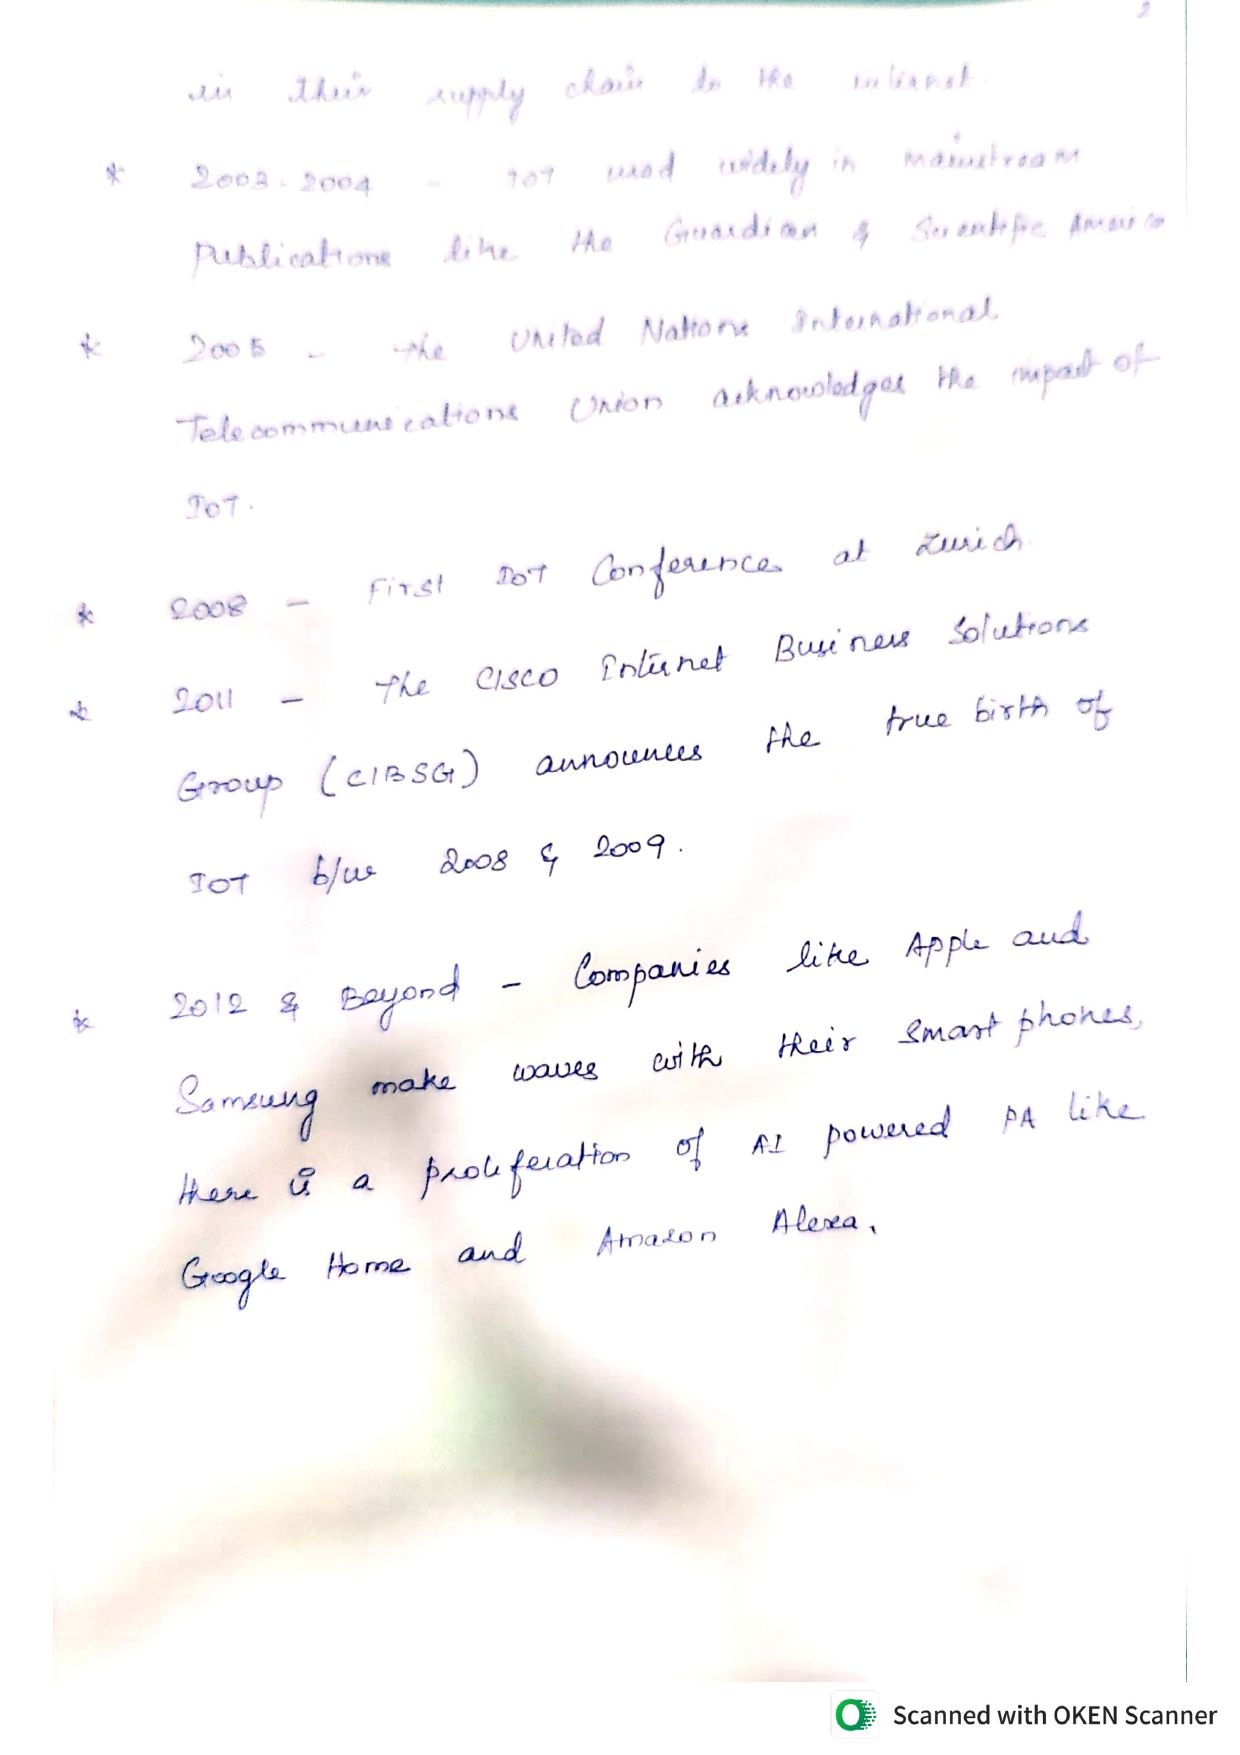 2
in their supply chain to the internet.
* 2003-2004 - IOT used widely in mainstream
Publications like the Guardian & Scientific America
* 2005 - the United Nations International
Telecommunications Union acknowledges the impact of
IOT.
* 2008 - First IOT Conference at Zurich.
* 2011 - The CISCO Internet Business Solutions
Group (CIBSG) announces the true birth of
IOT b/w 2008 & 2009.
* 2012 & Beyond - Companies like Apple and
Samsung make waves with their smart phones,
there is a proliferation of AI powered PA like
Google Home and Amazon Alexa.
Scanned with OKEN Scanner